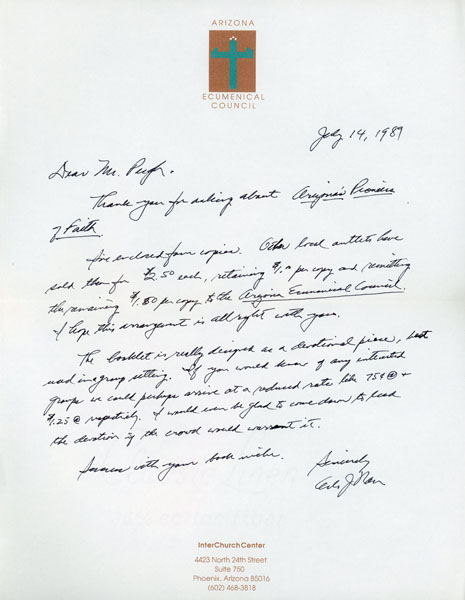 ARIZONA
ECUMENICAL
COUNCIL
July 14, 1989
Dear Mr. Pugh.
Thank you for asking about Arizona's Pioneers
of Faith.
I've enclosed four copies. Other local outlets have
sold them for $2.50 each, retaining $1.00 per copy and remitting
the remaining $1.50 per copy to the Arizona Ecumenical Council.
I hope this arrangement is all right with you.
The booklet is really designed as a devotional piece, best
used in a group setting. If you would know of any interested
groups we could perhaps arrive at a reduced rate like 75¢ @ +
$1.25 @ respectively. I would even be glad to come down to lead
the devotion if the crowd would warrant it.
Success with your book
Sincerely
InterChurch Center
4423 North 24th Street
Suite 750
Phoenix, Arizona 85016
(602) 468-3818